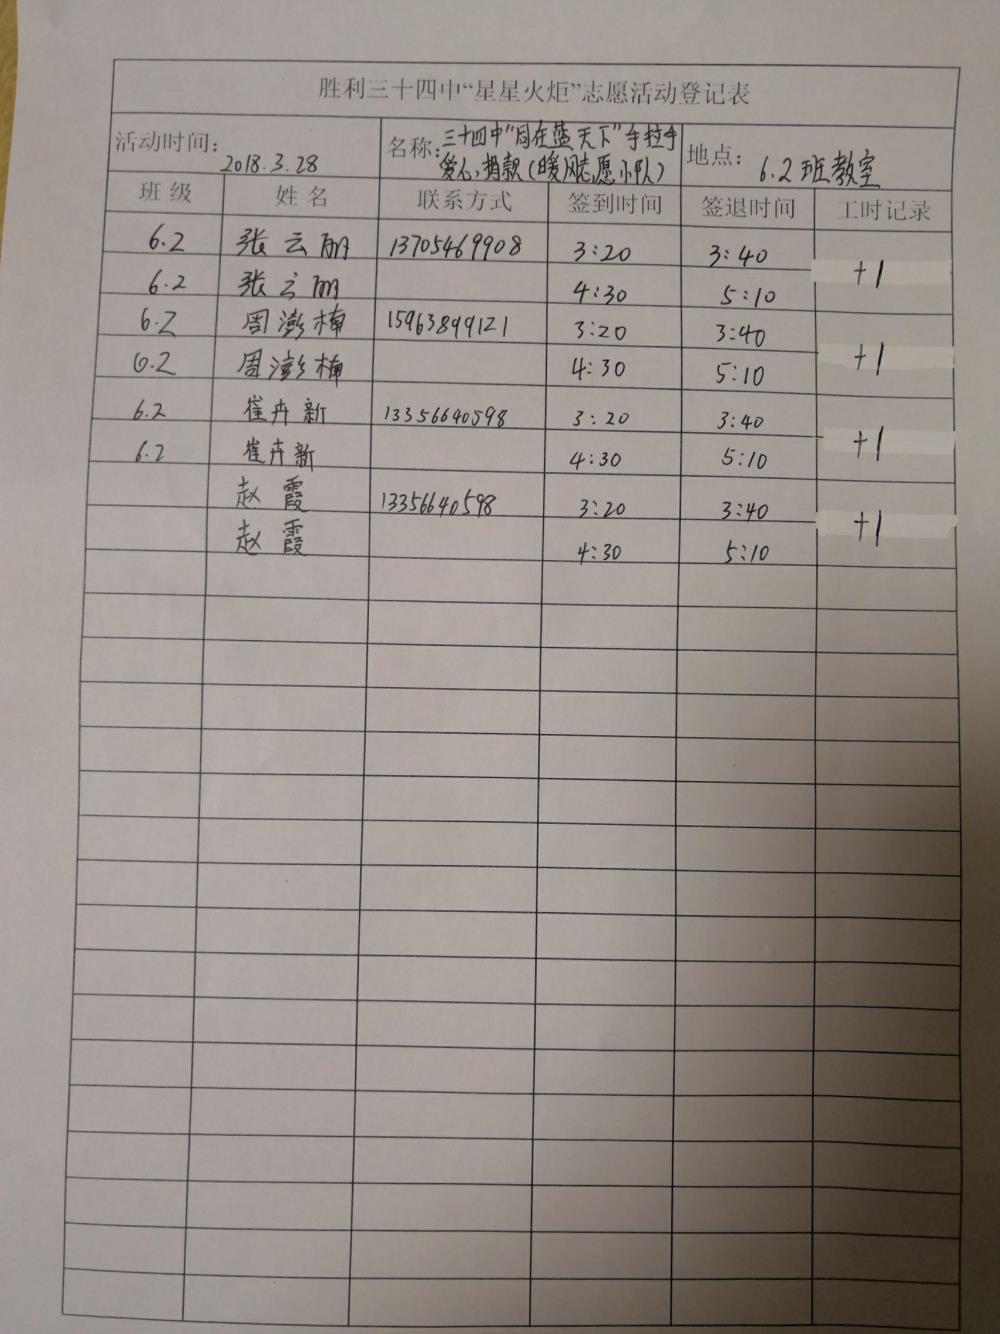 胜利三十四中“星星火炬”志愿活动登记表
活动时间: 2018.3.28 名称: 三十四中"同在蓝天下"手拉手 爱心捐款(暖风志愿小队) 地点: 6.2班教室
班级 姓名 联系方式 签到时间 签退时间 工时记录
6.2 张云丽 13705469908 3:20 3:40 +1
6.2 张云丽 4:30 5:10
6.2 周澎楠 15963899121 3:20 3:40 +1
6.2 周澎楠 4:30 5:10
6.2 崔卉新 13356640598 3:20 3:40 +1
6.2 崔卉新 4:30 5:10
赵霞 13356640598 3:20 3:40 +1
赵霞 4:30 5:10